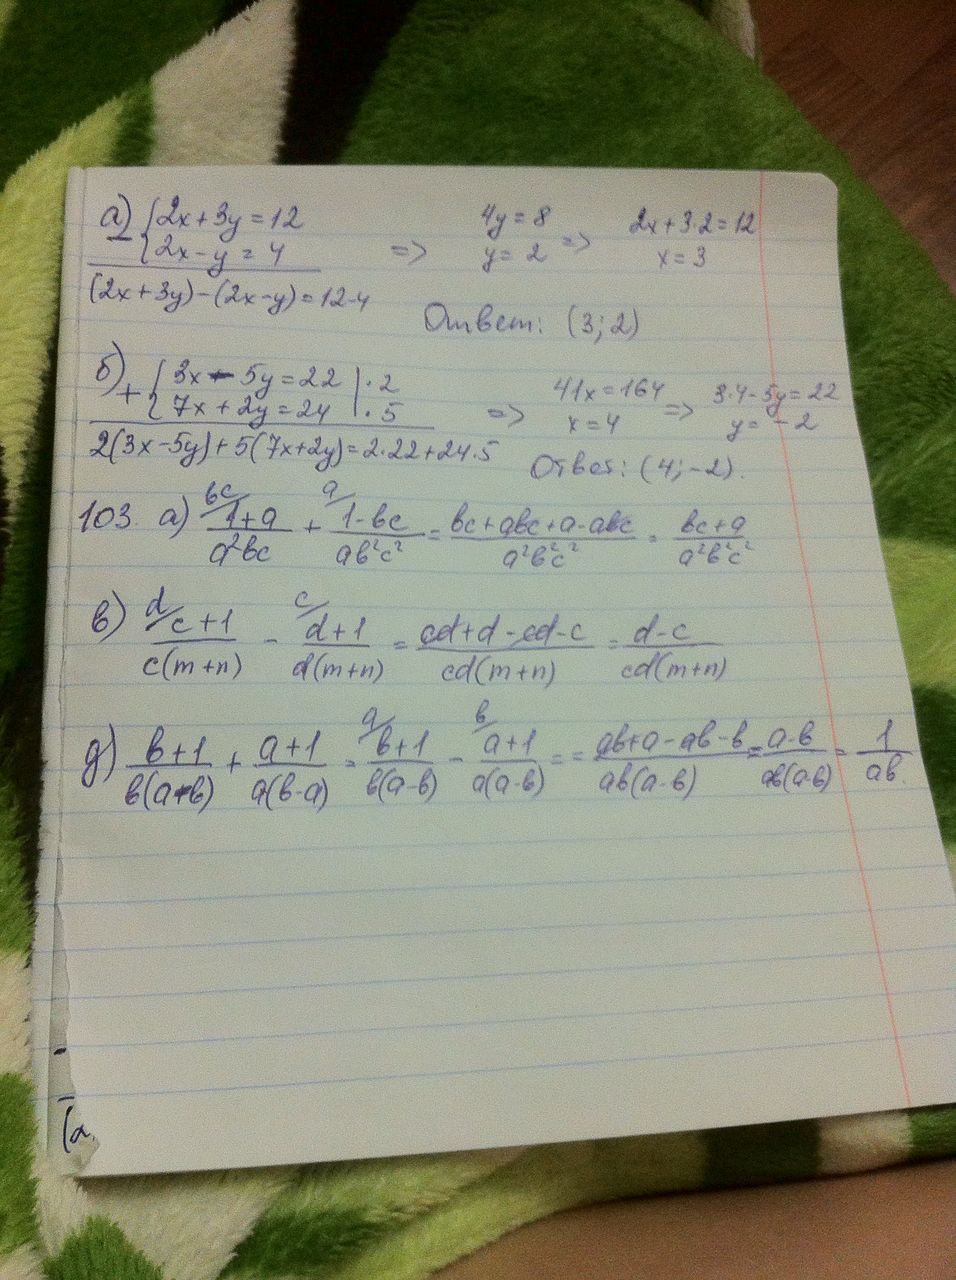 а) {2x+3y=12
{2x-y=4 => 4y=8 y=2 => 2x+3·2=12 x=3
(2x+3y)-(2x-y)=12-4
Ответ: (3;2)
б) + {3x-5y=22 |·2
{7x+2y=24 |·5 => 41x=164 x=4 => 3·4-5y=22 y=-2
2(3x-5y)+5(7x+2y)=2·22+24·5
Ответ: (4;-2).
103. а) bc/ (1+a)/(a²bc) + a/ (1-bc)/(ab²c²) = (bc+abc+a-abc)/(a²b²c²) = (bc+a)/(a²b²c²)
в) d/ (c+1)/(c(m+n)) - c/ (d+1)/(d(m+n)) = (cd+d-cd-c)/(cd(m+n)) = (d-c)/(cd(m+n))
д) (b+1)/(b(a-b)) + (a+1)/(a(b-a)) = a/ (b+1)/(b(a-b)) - b/ (a+1)/(a(a-b)) = = (ab+a-ab-b)/(ab(a-b)) = (a-b)/(ab(a-b)) = 1/(ab).